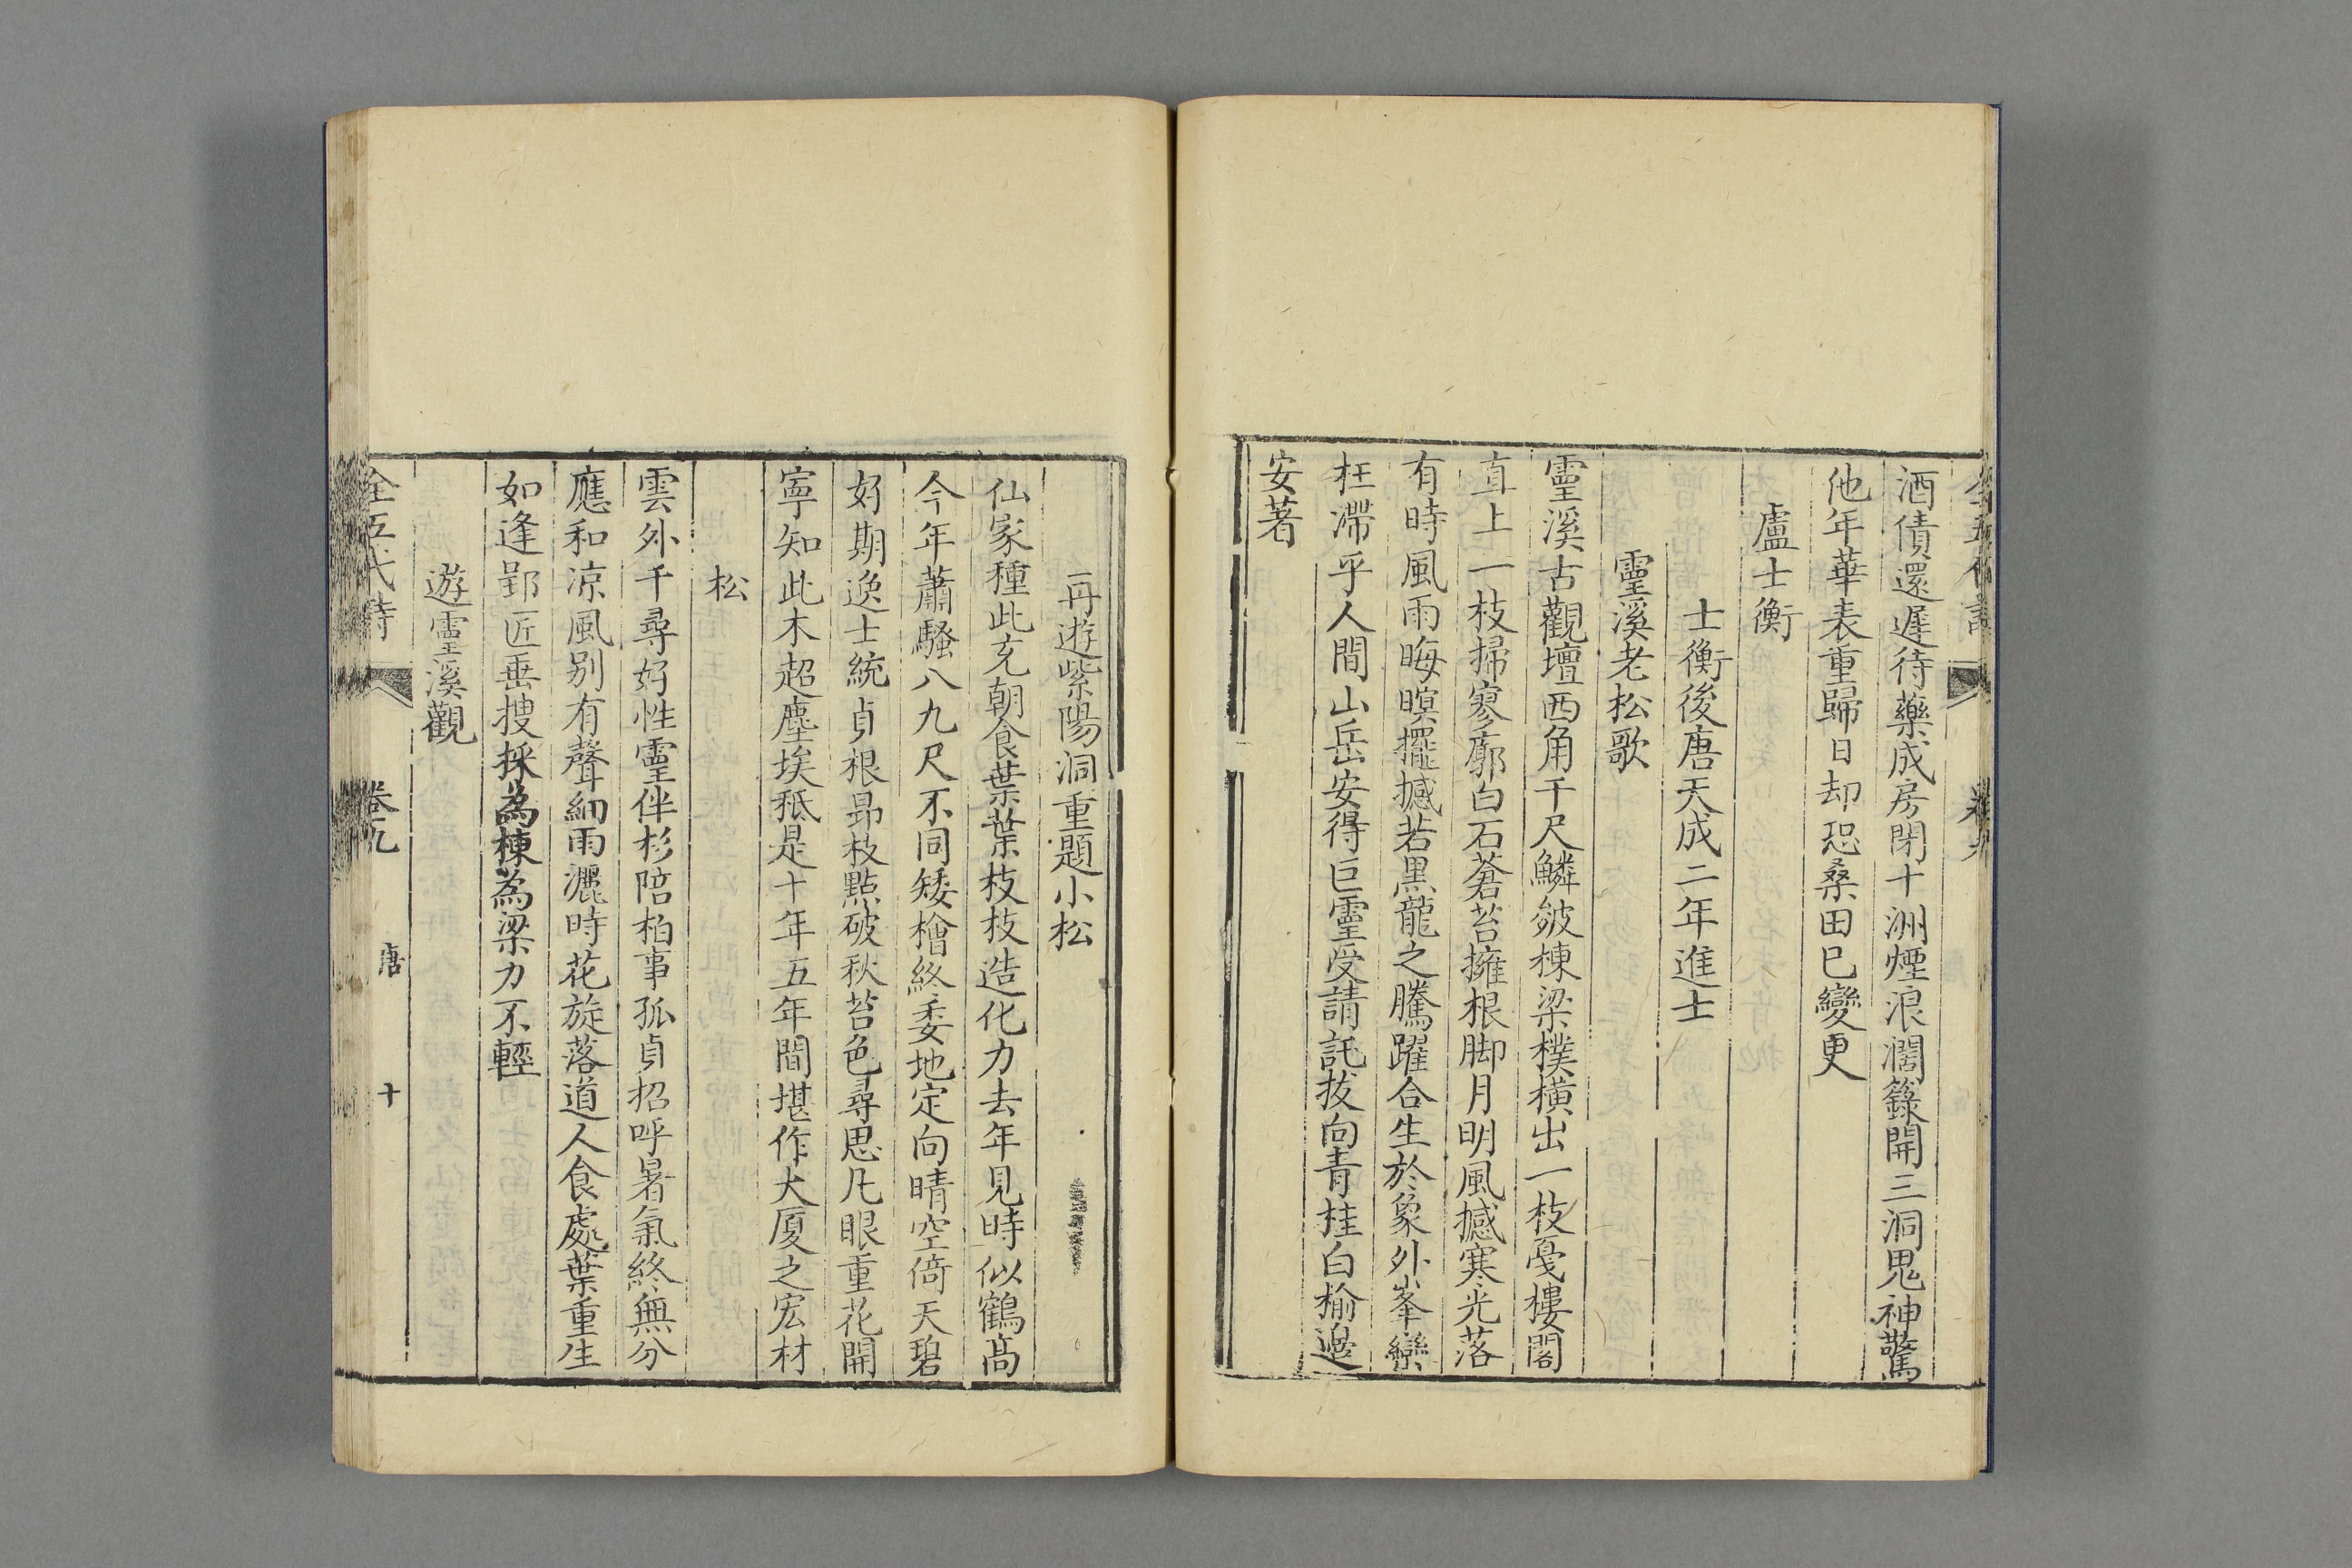 酒債還遲待藥成房閉十洲煙浪濶籙開三洞鬼神驚
他年華表重歸日却恐桑田已變更
盧士衡
士衡後唐天成二年進士
靈溪老松歌
靈溪古觀壇西角千尺鱗皴棟梁樸横出一枝戞樓閣
直上一枝掃寥廓白石蒼苔擁根脚月明風撼寒光落
有時風雨晦暝擺撼若黑龍之騰躍合生於象外峯巒
枉滯乎人間山岳安得巨靈受請託拔向青桂白榆邉
安著
再遊紫陽洞重題小松
仙家種此充朝食葉葉枝枝造化力去年見時似鶴髙
今年蕭騷八九尺不同矮檜終委地定向晴空倚天碧
好期逸士統貞根昻枝點破秋苔色尋思凡眼重花開
寧知此木超塵埃秪是十年五年間堪作大厦之宏材
松
雲外千尋好性靈伴杉陪柏事孤貞招呼暑氣終無分
應和凉風别有聲細雨灑時花旋落道人食處葉重生
如逢郢匠垂搜採為棟為梁力不輕
遊靈溪觀
全五代詩 卷九 唐 十